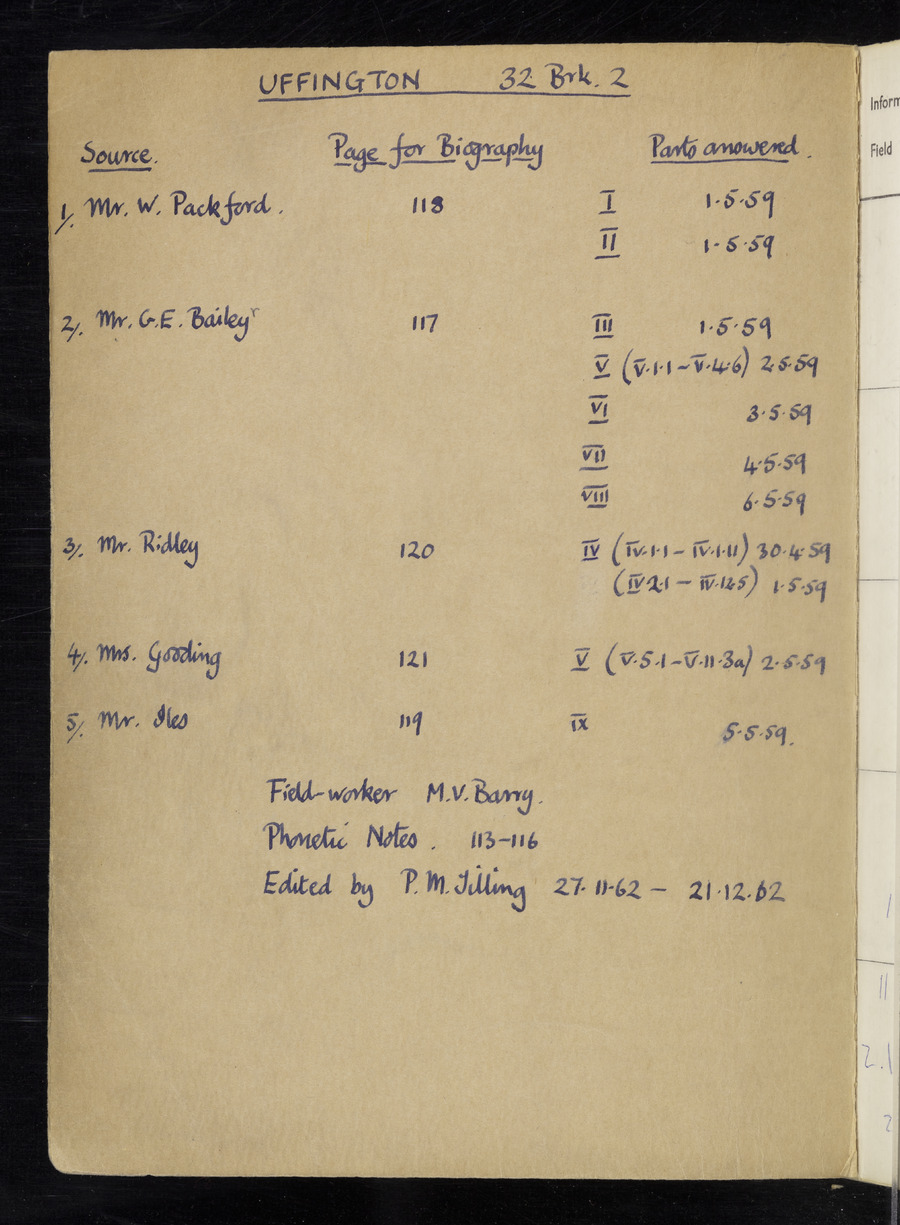 UFFINGTON 32 Brk. 2
Source. Page for Biography Parts answered.
1/. Mr. W. Packford. 118 I 1·5·59
II 1·5·59
2/. Mr. G.E. Bailey 117 III 1·5·59
V (V·1·1 – V·4·6) 2·5·59
VI 3·5·59
VII 4·5·59
VIII 6·5·59
3/. Mr. Ridley 120 IV (IV·1·1 – IV·1·11) 30·4·59
(IV·2·1 – IV·12·5) 1·5·59
4/. Mrs. Gooding 121 V (V·5·1 – V·11·3a) 2·5·59
5/. Mr. Iles 119 IX 5·5·59.
Field-worker M.V. Barry.
Phonetic Notes. 113–116
Edited by P.M. Tilling 27·11·62 – 21·12·62
Inform
Field
1
11
2.1
2